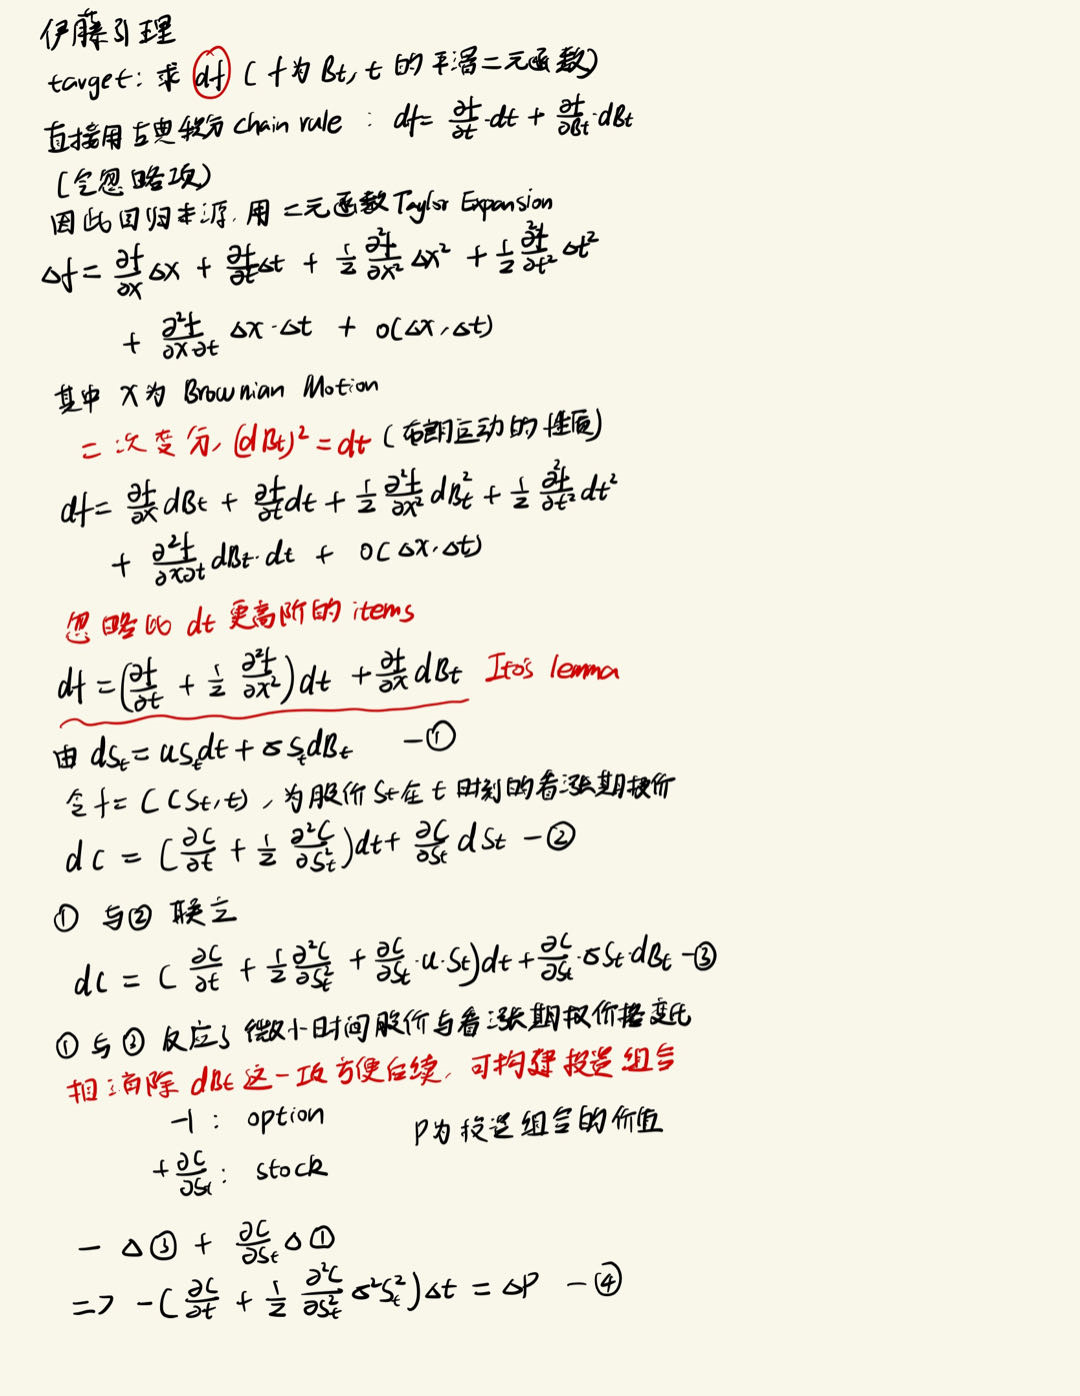 伊藤引理
target: 求 df ( f为 Bt, t 的平滑二元函数)
直接用古典积分 chain rule : df = ∂f/∂t · dt + ∂f/∂Bt · dBt
(会忽略项)
因此回归本源, 用二元函数 Taylor Expansion
Δf = ∂f/∂x Δx + ∂f/∂t Δt + 1/2 ∂²f/∂x² Δx² + 1/2 ∂²f/∂t² Δt²
+ ∂²f/∂x∂t Δx·Δt + o(Δx, Δt)
其中 x为 Brownian Motion
二次变分, (dBt)² = dt (布朗运动的性质)
df = ∂f/∂x dBt + ∂f/∂t dt + 1/2 ∂²f/∂x² dBt² + 1/2 ∂²f/∂t² dt²
+ ∂²f/∂x∂t dBt·dt + o(Δx·Δt)
忽略比 dt 更高阶的 items
df = (∂f/∂t + 1/2 ∂²f/∂x²) dt + ∂f/∂x dBt Ito's lemma
由 dSt = uStdt + σStdBt -①
令 f = C(St, t), 为股价 St在 t 时刻的看涨期权价
dC = (∂C/∂t + 1/2 ∂²C/∂St²) dt + ∂C/∂St dSt -②
① 与② 联立
dC = ( ∂C/∂t + 1/2 ∂²C/∂St² + ∂C/∂St · u · St) dt + ∂C/∂St · σSt · dBt -③
① 与 ③ 反应了微小时间股价与看涨期权价格变化
想消除 dBt 这一项方便后续, 可构建投资组合
-1 : option
P为投资组合的价值
+ ∂C/∂St : stock
- Δ③ + ∂C/∂St Δ①
=> -(∂C/∂t + 1/2 ∂²C/∂St² σ²St²) Δt = ΔP -④